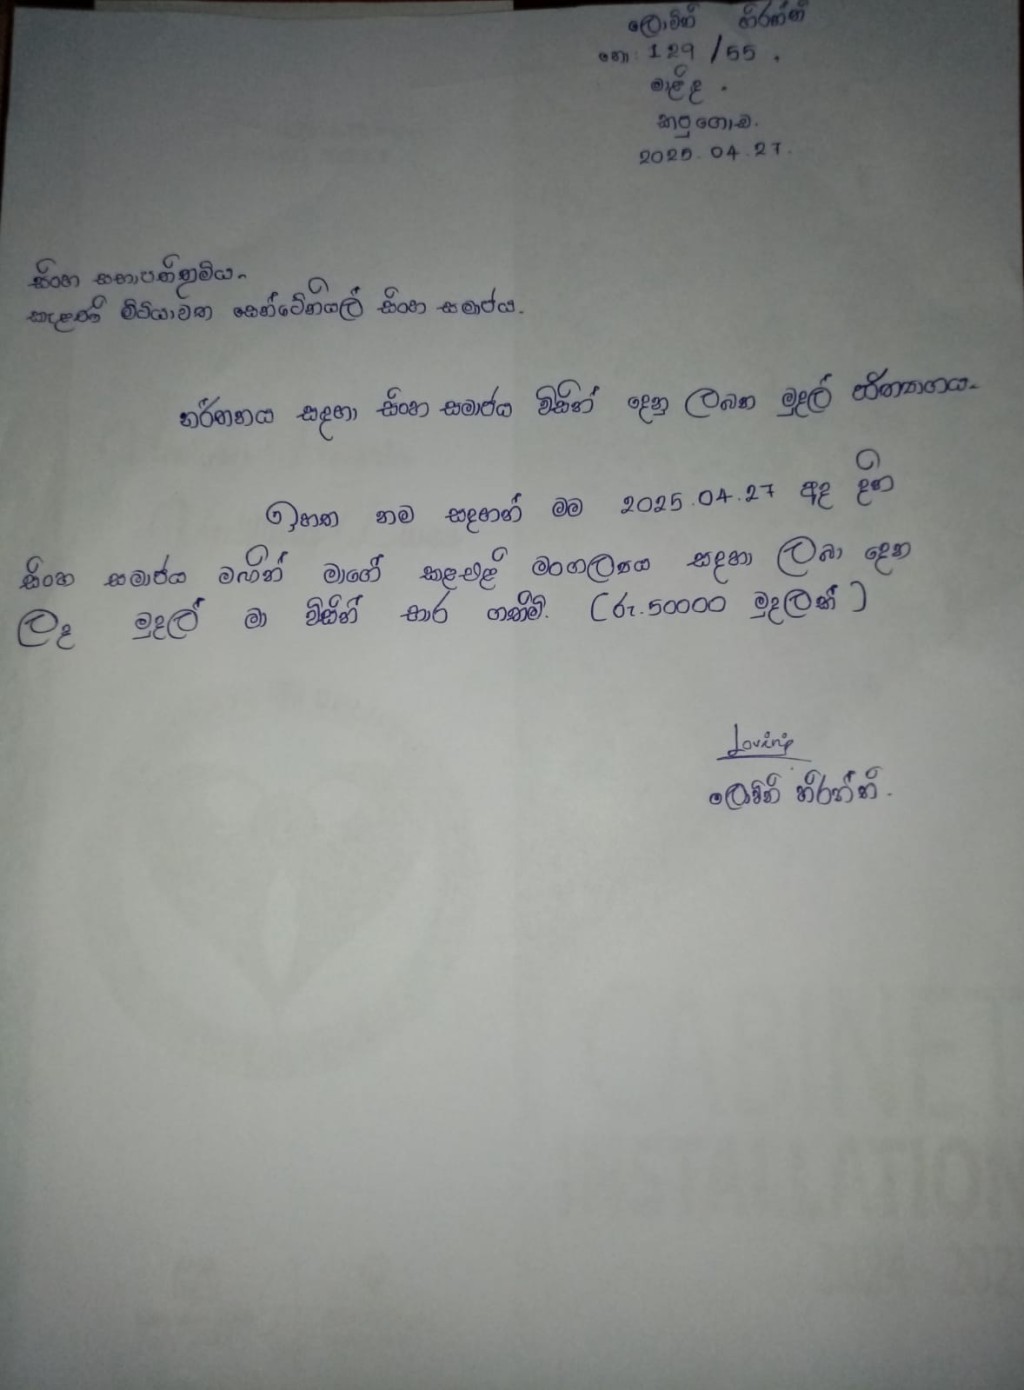 ලොවිනි හිරන්නි
නො: 129/55.
මැළිද.
කපුගොඩ.
2025.04.27.
සිංහ සභාපතිතුමිය.
කැළණි මීටියාවත සෙන්ටේනියල් සිංහ සමාජය.
නර්තනය සඳහා සිංහ සමාජය විසින් දෙනු ලබන මුදල් පරිත්‍යාගය.
ඉහත නම සඳහන් මම 2025.04.27 අද දින
සිංහ සමාජය මඟින් මාගේ කළඑළි මංගල්‍යය සඳහා ලබා දෙන
ලද මුදල් මා විසින් භාර ගතිමි. (රු.50000 මුදලක්)
Lovini
ලොවිනි හිරන්නි.